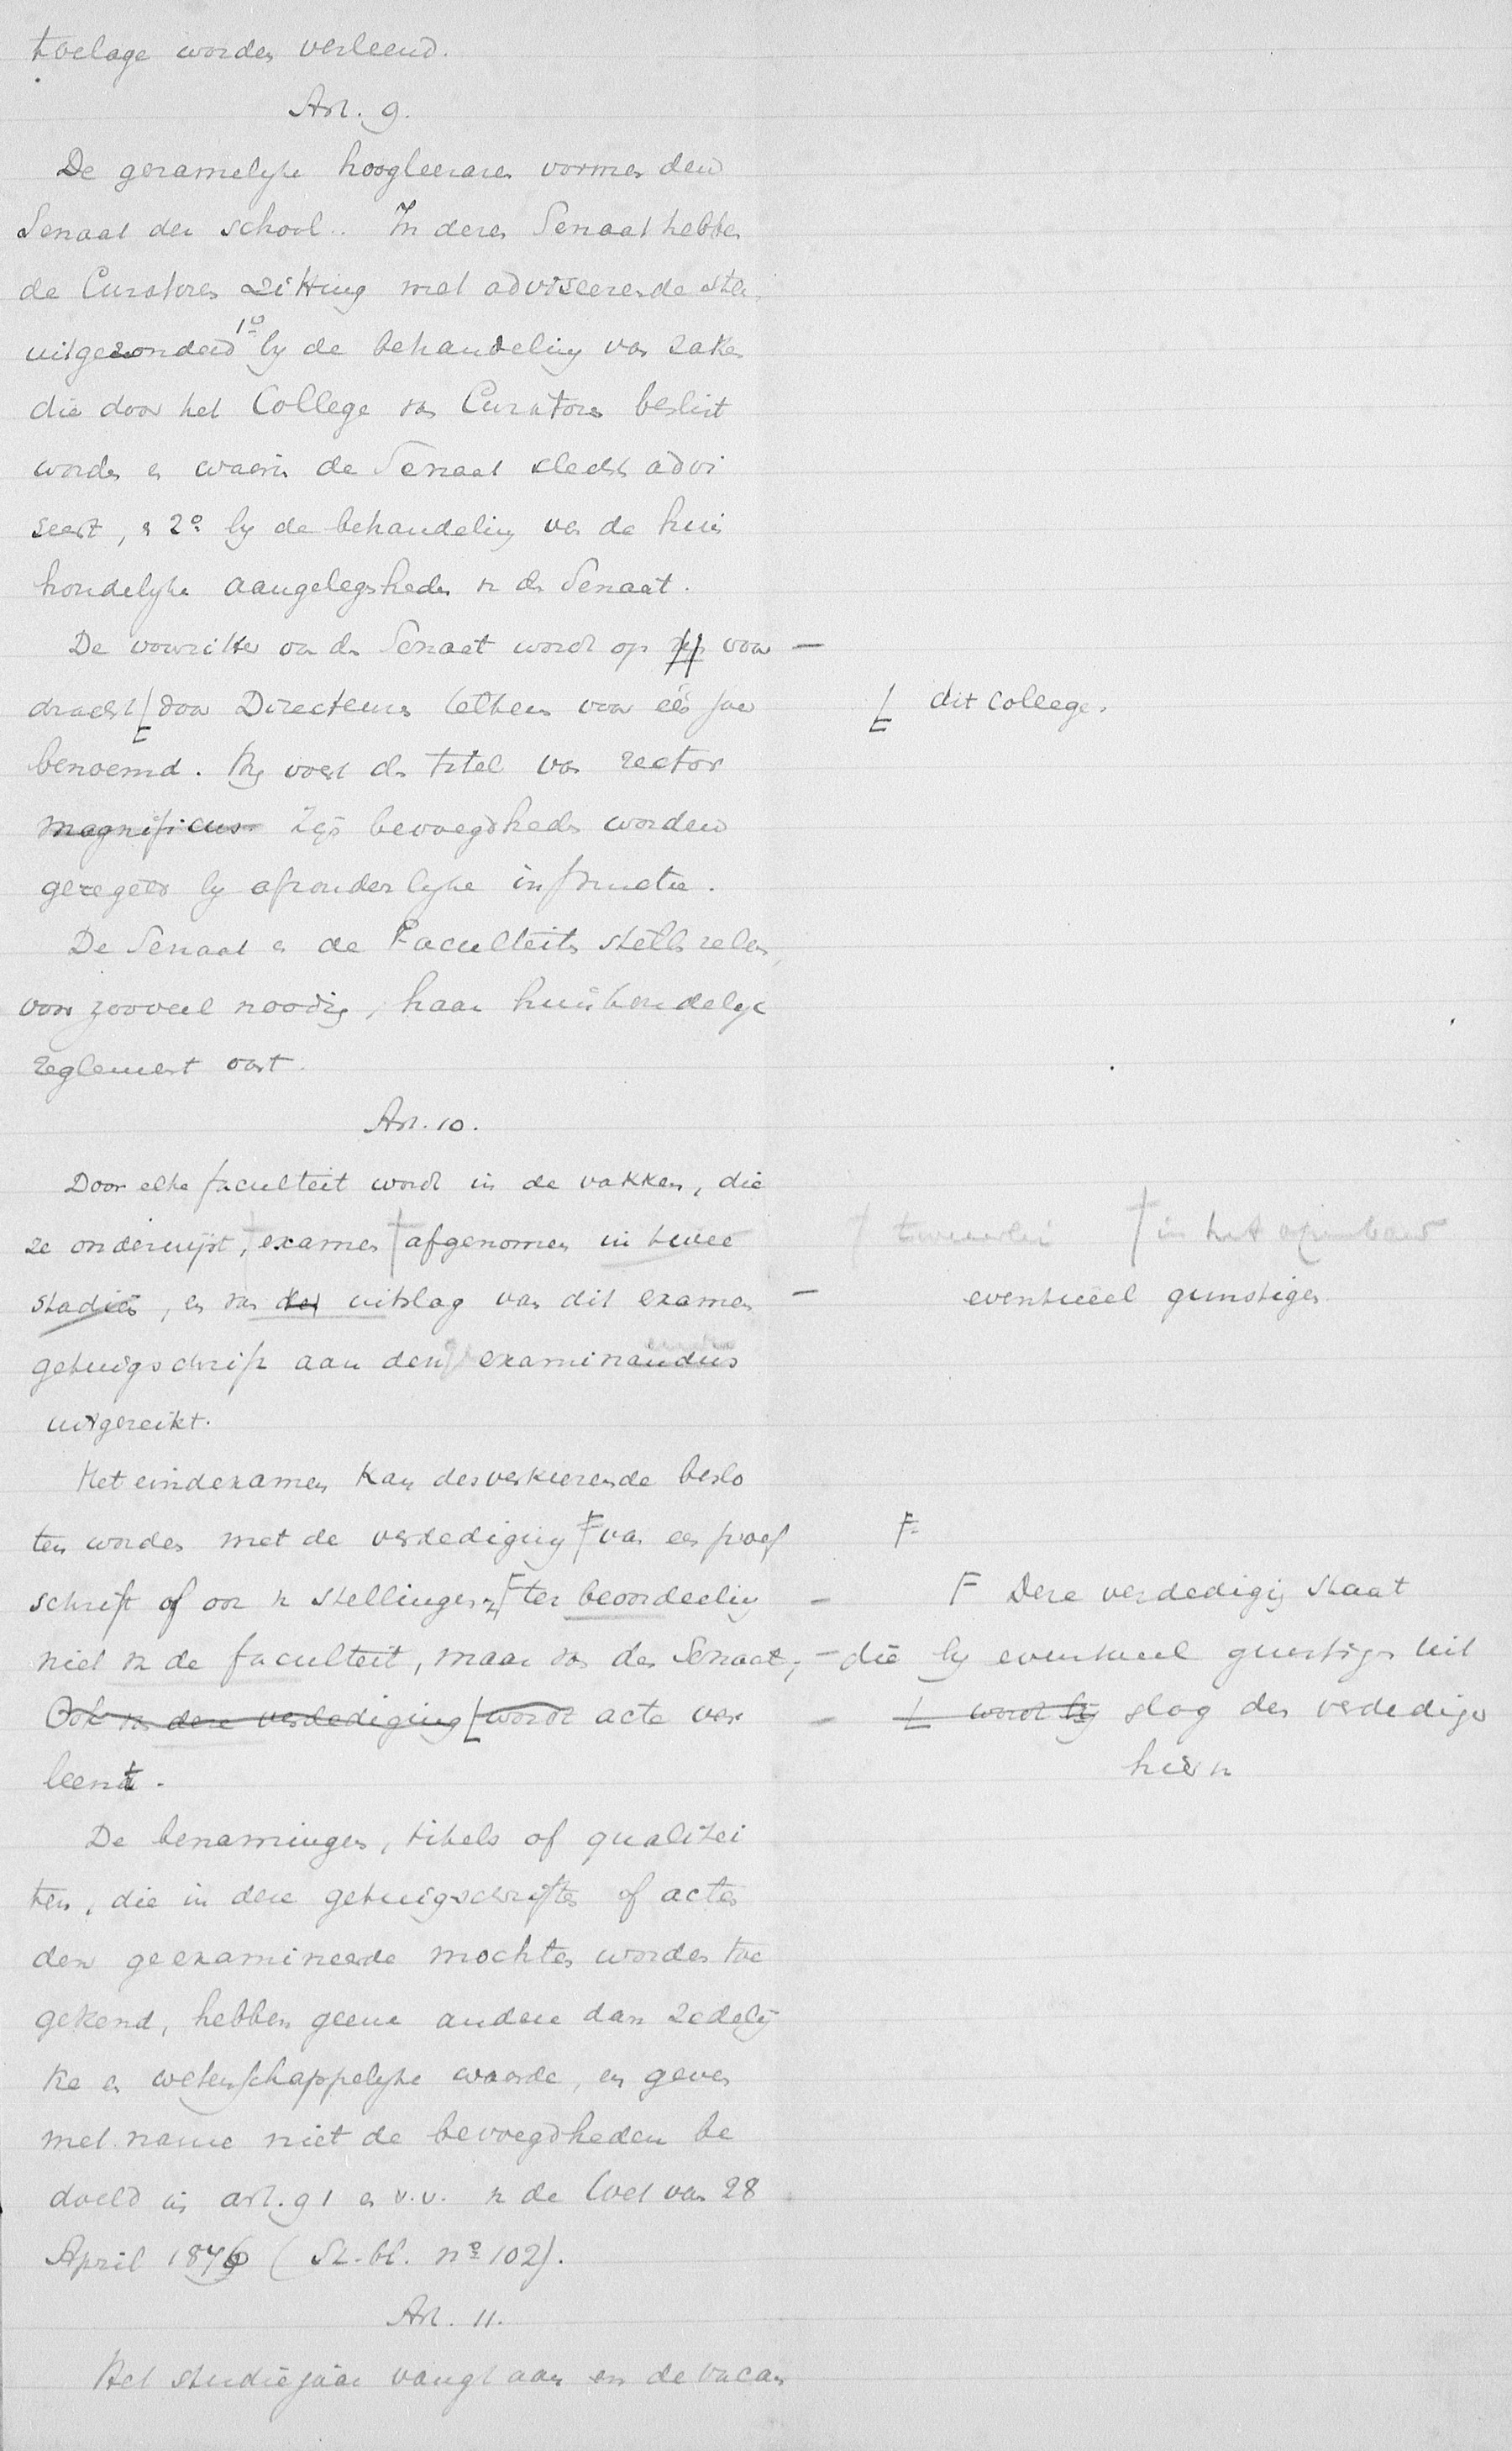 toelage worden verleend.
Art. 9.
De gezamelijke hoogleeraren vormen den
Senaat der school. In dezen Senaat hebben
de Curatoren zitting met adviseerende stem,
uitgezonderd 1o by de behandeling van zaken
die door het College van Curatoren beslist
worden en waarin de Senaat slechts advi
seert, en 2o by de behandeling van de huis
houdelijke aangelegenheden van den Senaat.
De voorzitter van den Senaat wordt op voor –
dracht door Directeuren telkens voor één jaar
dit College.
benoemd. Hij voert den titel van rector
magnificus Zijn bevoegdheden worden
geregeld by afzonderlijke instructie.
De Senaat en de Faculteiten stellen zelven,
voor zooveel noodig, haar huishoudelijk
reglement vast.
Art. 10.
Door elke faculteit wordt in de vakken, die
ze onderwijst, examen † afgenomen in twee
† tweeerlei † in het openbaar
stadiën, en van den uitslag van dit examen –
eventueel gunstigen
getuigschrift aan den examinandus
uitgereikt.
Het eindexamen kan desverkiezende beslo
ten worden met de verdediging F van een proef
F
schrift of van stellingen, F ter beoordeeling –
F Deze verdediging staat
niet van de faculteit, maar van den Senaat, –
die by eventueel gunstigen uit
Ook van deze verdediging wordt acte ver –
wordt by slag der verdediging
leent.
hiervan
De benamingen, titels of qualitei
ten, die in deze getuigschriften of acten
den geexamineerde mochten worden toe
gekend, hebben geene andere dan zedelij
ke en wetenschappelijke waarde, en geven
met name niet de bevoegdheden be
doeld in art. 91 en v.v. van de Wet van 28
April 1876 (St.-bl. no 102).
Art. 11.
Het studiejaar vangt aan en de vacan